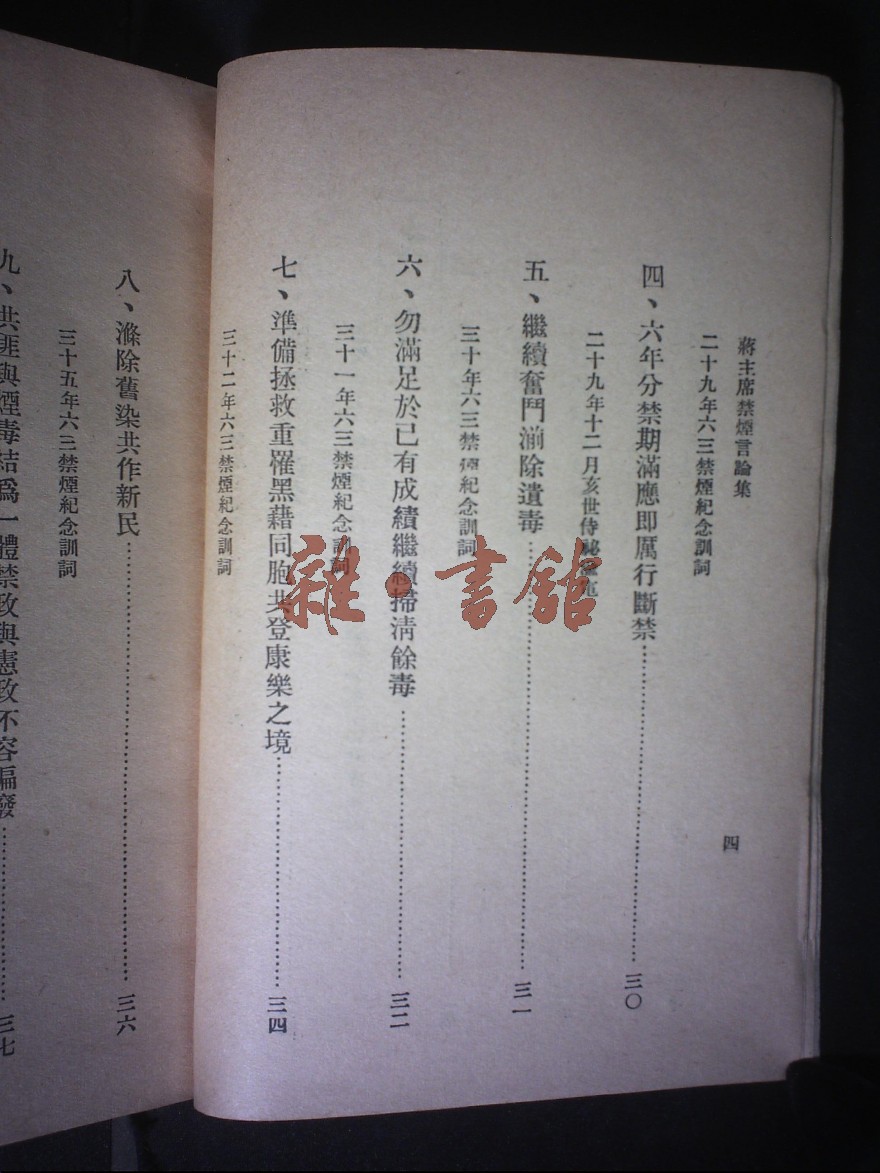 蔣主席禁煙言論集
四
二十九年六三禁煙紀念訓詞
四、六年分禁期滿應即厲行斷禁……三〇
二十九年十二月亥世侍祕
五、繼續奮鬥湔除遺毒……三一
三十年六三禁煙紀念訓詞
六、勿滿足於已有成績繼續掃淸餘毒……三二
三十一年六三禁煙紀念訓詞
七、準備拯救重罹黑藉同胞共登康樂之境……三四
三十二年六三禁煙紀念訓詞
八、滌除舊染共作新民……三六
三十五年六三禁煙紀念訓詞
九、共匪與煙毒結爲一體禁政與憲政不容偏廢……三七
雜·書館